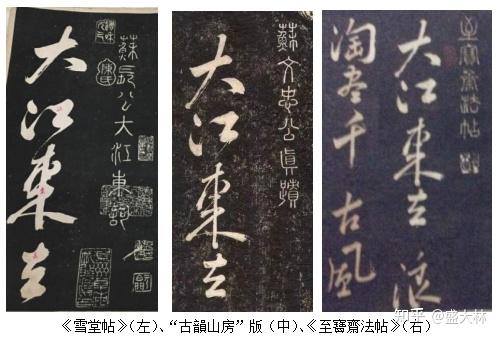 蘇長公大江東詞
大江東去
蘇文忠公眞蹟
大江東去
至寶齋法帖
大江東去浪
淘尽千古風
知乎 @盛大林
《雪堂帖》(左)、“古韻山房”版(中)、《至寶齋法帖》(右)